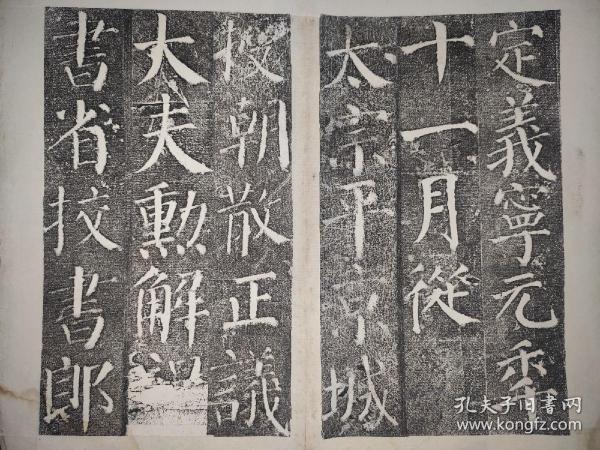 定義寧元年
十一月從
太宗平京城
授朝散正議
大夫勳解
書省挍書郎
孔夫子旧書网
www.kongfz.com